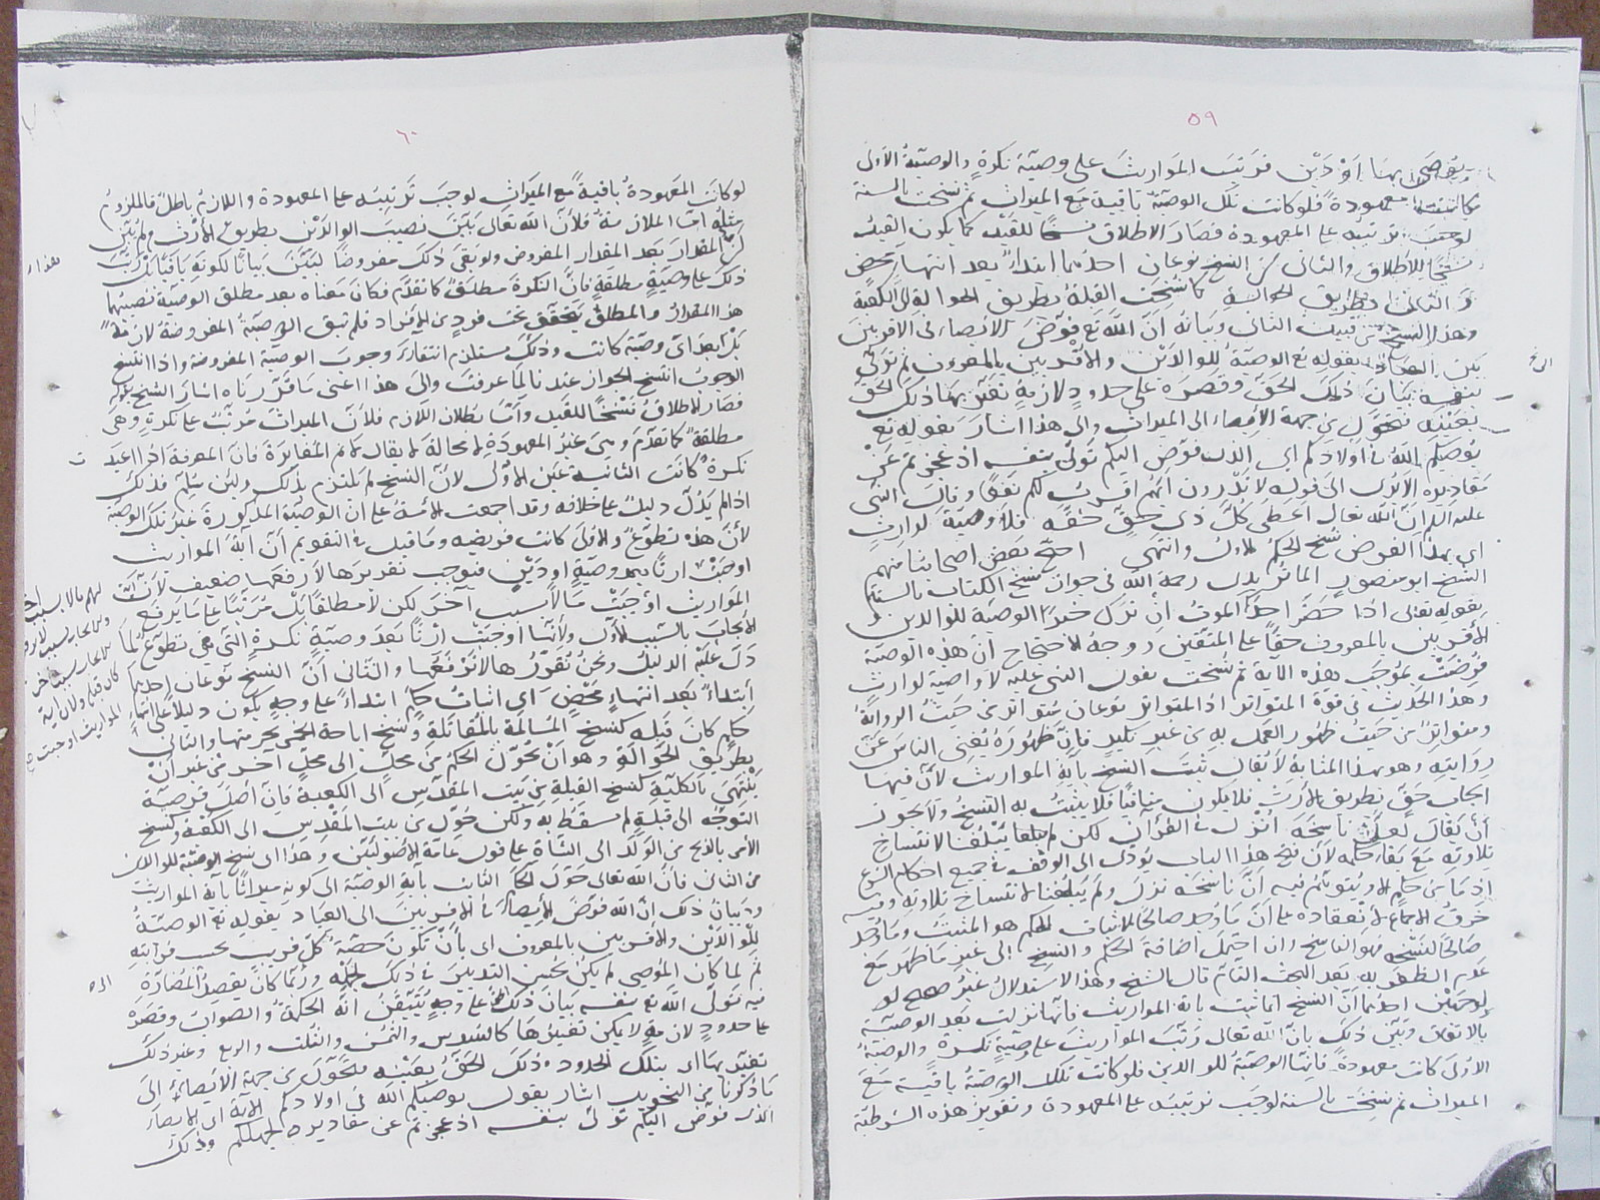 ٥٩
يوصى بها أو دين فرتب المواريث على وصية نكرة والوصية الأولى
كانت معهودة فلو كانت تلك الوصية باقية مع الميراث ثم نسخت بالسنة
لوجب ترتيبه على المعهودة فصار الاطلاق نسخا للقيد كما يكون القيد
نسخا للاطلاق والثاني أن النسخ نوعان أحدهما ابتداء بعد انتهاء محض
والثاني بطريق الحوالة كما نسخت القبلة بطريق الحوالة إلى الكعبة
وهذا النسخ من قبيل الثاني وبيانه أن الله تع فوض الإيصاء في الأقربين
إلى العباد بقوله تع الوصية للوالدين والأقربين بالمعروف ثم تولى
بنفسه بيان ذلك الحق وقصره على حدود لازمة تعين بها ذلك الحق
بعينه فتحول من جهة الإيصاء إلى الميراث وإلى هذا أشار بقوله تع
يوصيكم الله في أولادكم أي الذي فوض إليكم تولى بنفسه إذ عجزتم عن
مقاديره ألا ترى إلى قوله لا تدرون أيهم أقرب لكم نفعا وقال النبي
عليه السلام إن الله تعالى أعطى كل ذي حق حقه فلا وصية لوارث
أي بهذا الفرض نسخ الحكم الأول وانتهى احتج بعض أصحابنا منهم
الشيخ أبو منصور الماتريدي رحمه الله في جواز نسخ الكتاب بالسنة
بقوله تعالى إذا حضر أحدكم الموت إن ترك خيرا الوصية للوالدين و
الأقربين بالمعروف حقا على المتقين ووجه الاحتجاج أن هذه الوصية
فرضت بموجب هذه الآية ثم نسخت بقول النبي عليه لا وصية لوارث
وهذا الحديث في قوة المتواتر إذ المتواتر نوعان متواتر من حيث الرواية
ومتواتر من حيث ظهور العمل به من غير نكير فإن ظهوره يغني الناس عن
روايته وهو بهذا المثابة لا يقال ثبت النسخ بآية المواريث لأن فيها
إيجاب حق بطريق الإرث فلا يكون منافيا فلا يثبت به النسخ ولا يجوز
أن يقال لعل ناسخه أنزل في القرآن لكن لم يبلغنا لانتساخ
تلاوته مع بقاء حكمه لأن فتح هذا الباب يؤدي إلى الوقف في جميع أحكام الشرع
إذ ما من حكم إلا ويتوهم فيه أن ناسخه نزل ولم يبلغنا لانتساخ تلاوته وفيه
خرق الإجماع لانعقاده على أن ما وجد صالحا لإثبات الحكم هو المثبت وما وجد
صالحا للنسخ فهو الناسخ وإن احتمل إضافة الحكم والنسخ إلى غير ما ظهر مع
عدم الظفر به بعد البحث التام قال الشيخ وهذا الاستدلال غير صحيح لو
لوجهين أحدهما أن النسخ إنما ثبت بآية المواريث فإنها نزلت بعد الوصية
بالاتفاق وبين ذلك بأن الله تعالى رتب المواريث على وصية نكرة والوصية
الأولى كانت معهودة فإنها الوصية للوالدين فلو كانت تلك الوصية باقية مع
الميراث ثم نسخت بالسنة لوجب ترتيبه على المعهودة وتقرير هذه الشرطية
٦٠
لو كانت المعهودة باقية مع الميراث لوجب ترتيبه على المعهودة واللازم باطل فالملزوم
مثله أما الملازمة فلأن الله تعالى بين نصيب الوالدين بطريق الإرث ولم يبين
أن هذا المقدار بعد المقدار المفروض ولو بقي ذلك مفروضا لبين بيانا لكونه باقيا بل رتب
ذلك على وصية مطلقة فإن النكرة مطلقة كما تقدم فكان معناه بعد مطلق الوصية نصيبهما
هذا المقدار والمطلق يتحقق تحت فرد من الأفراد فلم تبق الوصية المفروضة لازمة
بل بعد أي وصية كانت وذلك مستلزم انتفاء وجوب الوصية المفروضة وإذا انتسخ
الوجوب انتسخ الجواز عندنا لما عرفت وإلى هذا أعني ما قررناه أشار الشيخ بقوله
فصار الإطلاق نسخا للقيد وأما بطلان اللازم فلأن الميراث مرتب على نكرة وهي
مطلقة كما تقدم وهي غير المعهودة لا محالة لا يقال لا ثم المغايرة فإن المعرفة إذا أعيد ت
نكرة كانت الثانية عين الأولى لأن الشيخ لم يلتزم بذلك ولئن سلم فذلك
إذا لم يدل دليل على خلافه وقد أجمعت الأمة على أن الوصية المذكورة غير تلك الوصية
لأن هذه تطوع والأولى كانت فريضة وما قيل في التقويم أن آية المواريث
أوجبت إرثا بعد وصية أو دين فيوجب تقريرها لا رفعها ضعيف لأن آية
المواريث أوجبت مالا بسبب آخر لكن لا مطلقا بل مرتبا على ما يرفع
الإيجاب بالسبب الأول ولأنها أوجبت إرثا بعد وصية نكرة التي هي تطوع لما
دل عليه الدليل ونحن نقررها لا نرفعها والثاني أن النسخ نوعان أحدهما
ابتداء بعد انتهاء محض أي إثبات حكم ابتداء على وجه يكون دليلا على انتهاء
حكم كان قبله كنسخ المسالمة بالمقاتلة ونسخ إباحة الخمر بحرمتها والثاني
بطريق الحوالة وهو أن يحول الحكم من محل إلى محل آخر من غير أن
ينتهي بالكلية كنسخ القبلة من بيت المقدس إلى الكعبة فإن أصل فرضية
التوجه إلى قبلة لم يسقط به ولكن حول من بيت المقدس إلى الكعبة وكنسخ
الأمر بالذبح من الولد إلى الشاة على قول عامة الأصوليين وهذا أي نسخ الوصية للوالدين
من الثاني فإن الله تعالى حول الحكم الثابت بآية الوصية إلى كونه ميراثا بآية المواريث
وبيان ذلك أن الله فوض الإيصاء في الأقربين إلى العباد بقوله تع الوصية
للوالدين والأقربين بالمعروف أي بأن تكون حصة كل قريب بحسب قرابته
ثم لما كان الموصي لم يكن يحسن التدبير في ذلك لجهله وربما كان يقصد المضارة
فيه تولى الله تع بنفسه بيان ذلك الحق على وجه يتيقن أنه الحكمة والصواب وقصره
على حدود لازمة لا يمكن تغييرها كالسدس والثمن والثلث والربع وغير ذلك
تعين بها أي بتلك الحدود وذلك الحق بعينه فتحول من جهة الإيصاء إلى
ما ذكرنا من التحويل أشار بقوله يوصيكم الله في أولادكم الآية أي الإيصاء
الذي فوض إليكم تولى بنفسه إذ عجزتم عن مقاديره لجهلكم وذلك